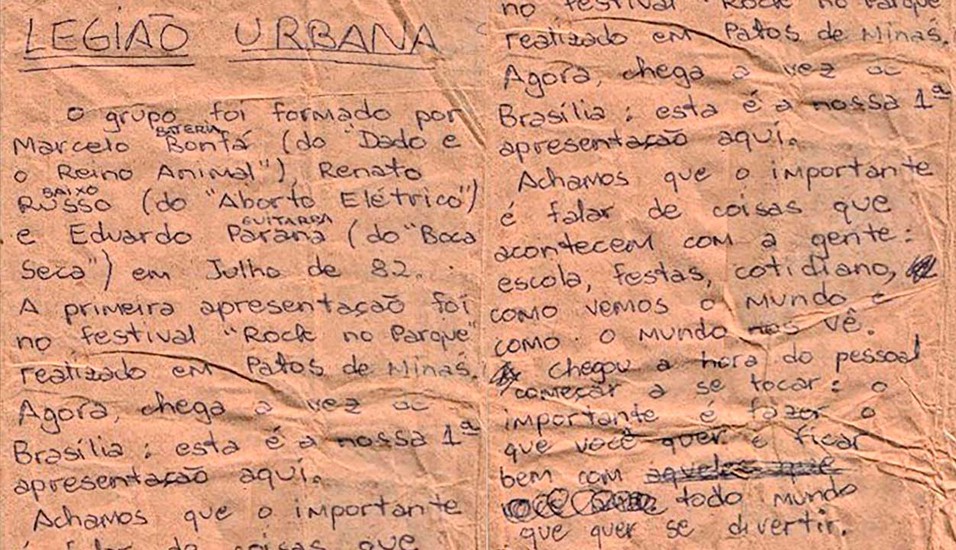 LEGIÃO URBANA
O grupo foi formado por
BATERIA
Marcelo Bonfá (do "Dado e
o Reino Animal"), Renato
BAIXO
Russo (do "Aborto Elétrico")
GUITARRA
e Eduardo Paraná (do "Boca
Seca") em Julho de 82.
A primeira apresentação foi
no festival "Rock no Parque"
realizado em Patos de Minas.
Agora, chega a vez de
Brasília: esta é a nossa 1ª
apresentação aqui.
Achamos que o importante
é falar de coisas que
no festival "Rock no Parque
realizado em Patos de Minas.
Agora, chega a vez de
Brasília: esta é a nossa 1ª
apresentação aqui.
Achamos que o importante
é falar de coisas que
acontecem com a gente:
escola, festas, cotidiano,
como vemos o mundo e
como o mundo nos vê.
Chegou a hora do pessoal
começar a se tocar: o
importante é fazer o
que você quer e ficar
bem com
todo mundo
que quer se divertir.